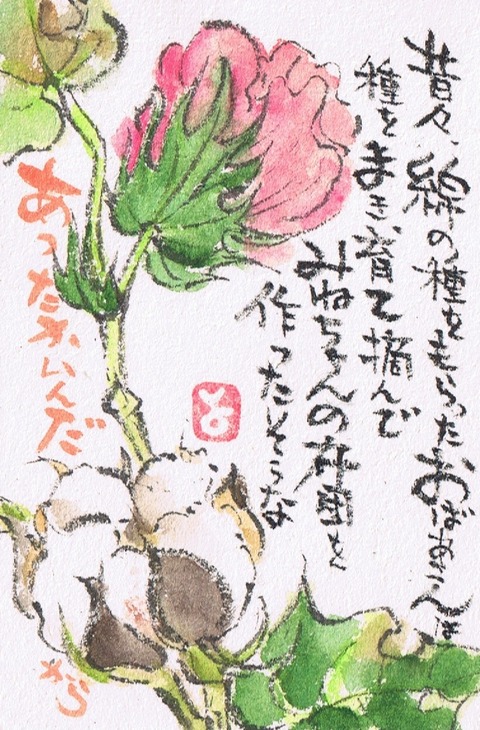 昔々、綿の種をもらったおばあさんは
種をまき育て摘んで
みねちゃんの布団を
作ったそうな
あったかいんだ
がら
よ